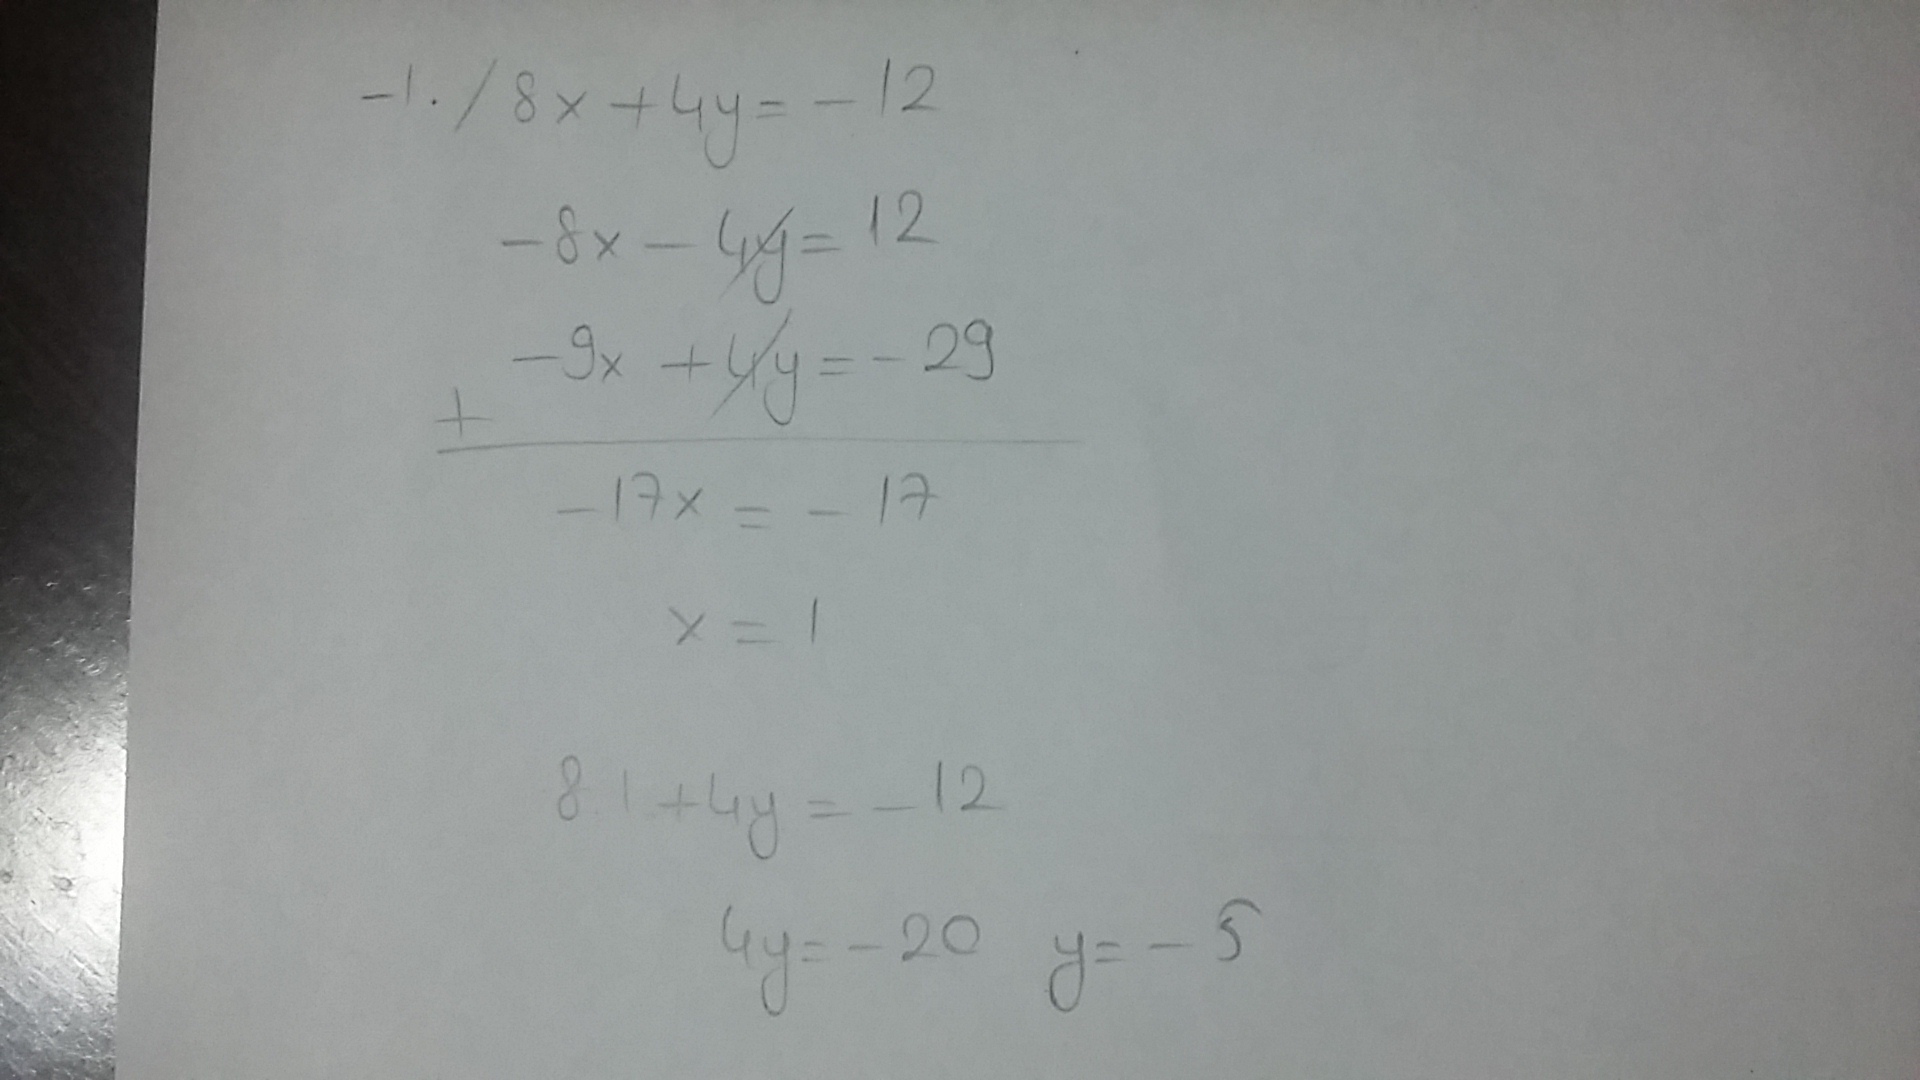 -1. / 8x + 4y = - 12
-8x - 4y = 12
-9x + 4y = - 29
+
-17x = - 17
x = 1
8.1 + 4y = - 12
4y = - 20 y = - 5